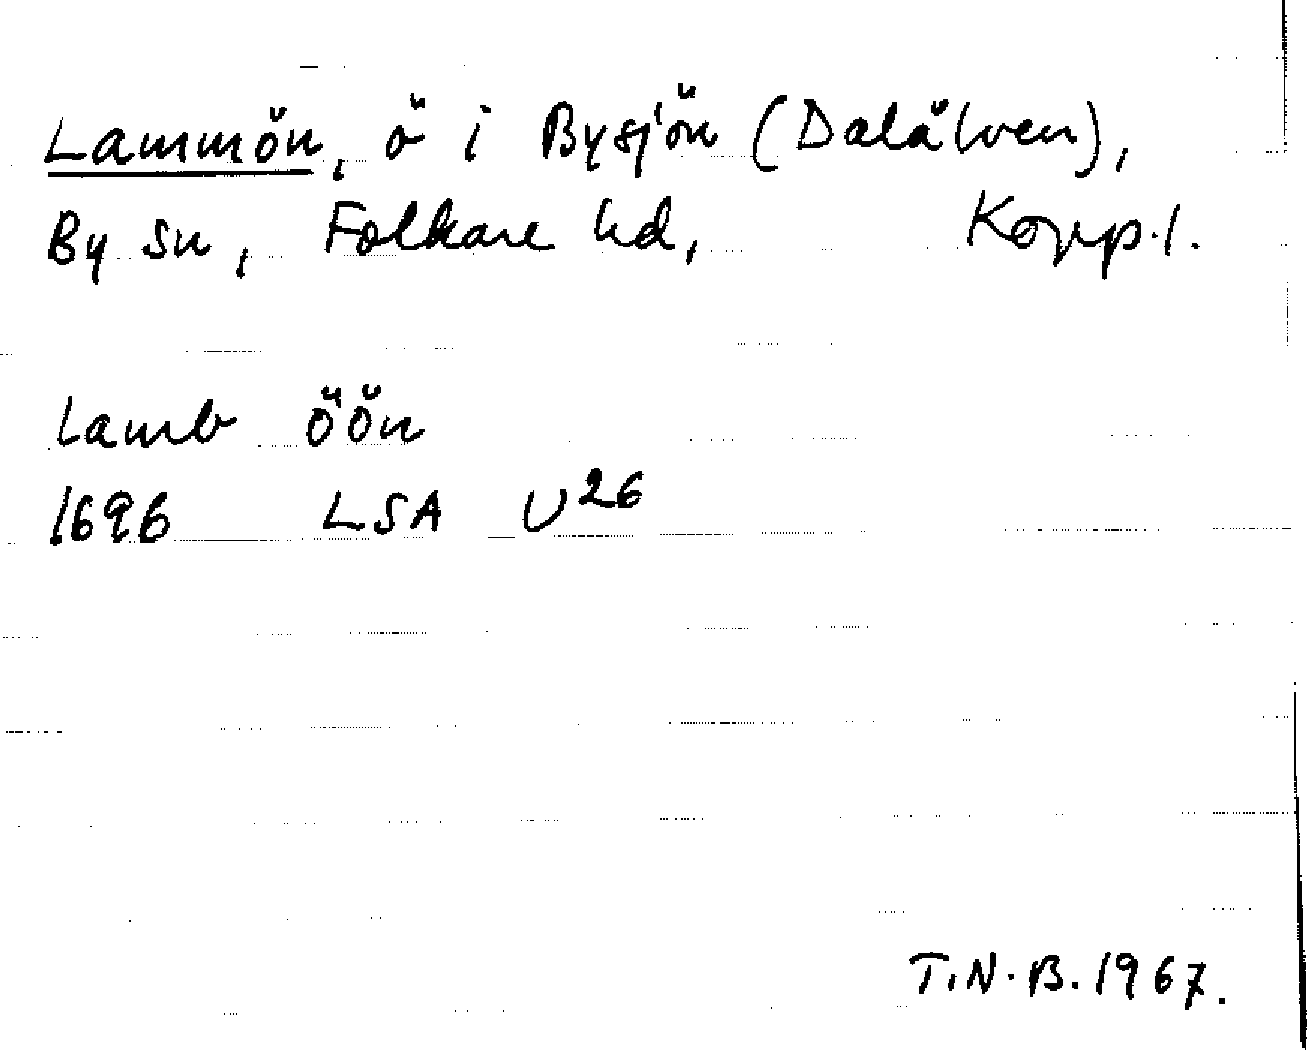 Lammön, ö i Bysjön (Dalälven),
By sn, Folkare hd, Kopp.l.
Lamb öön
1696 LSA U26
T.N.B. 1967.